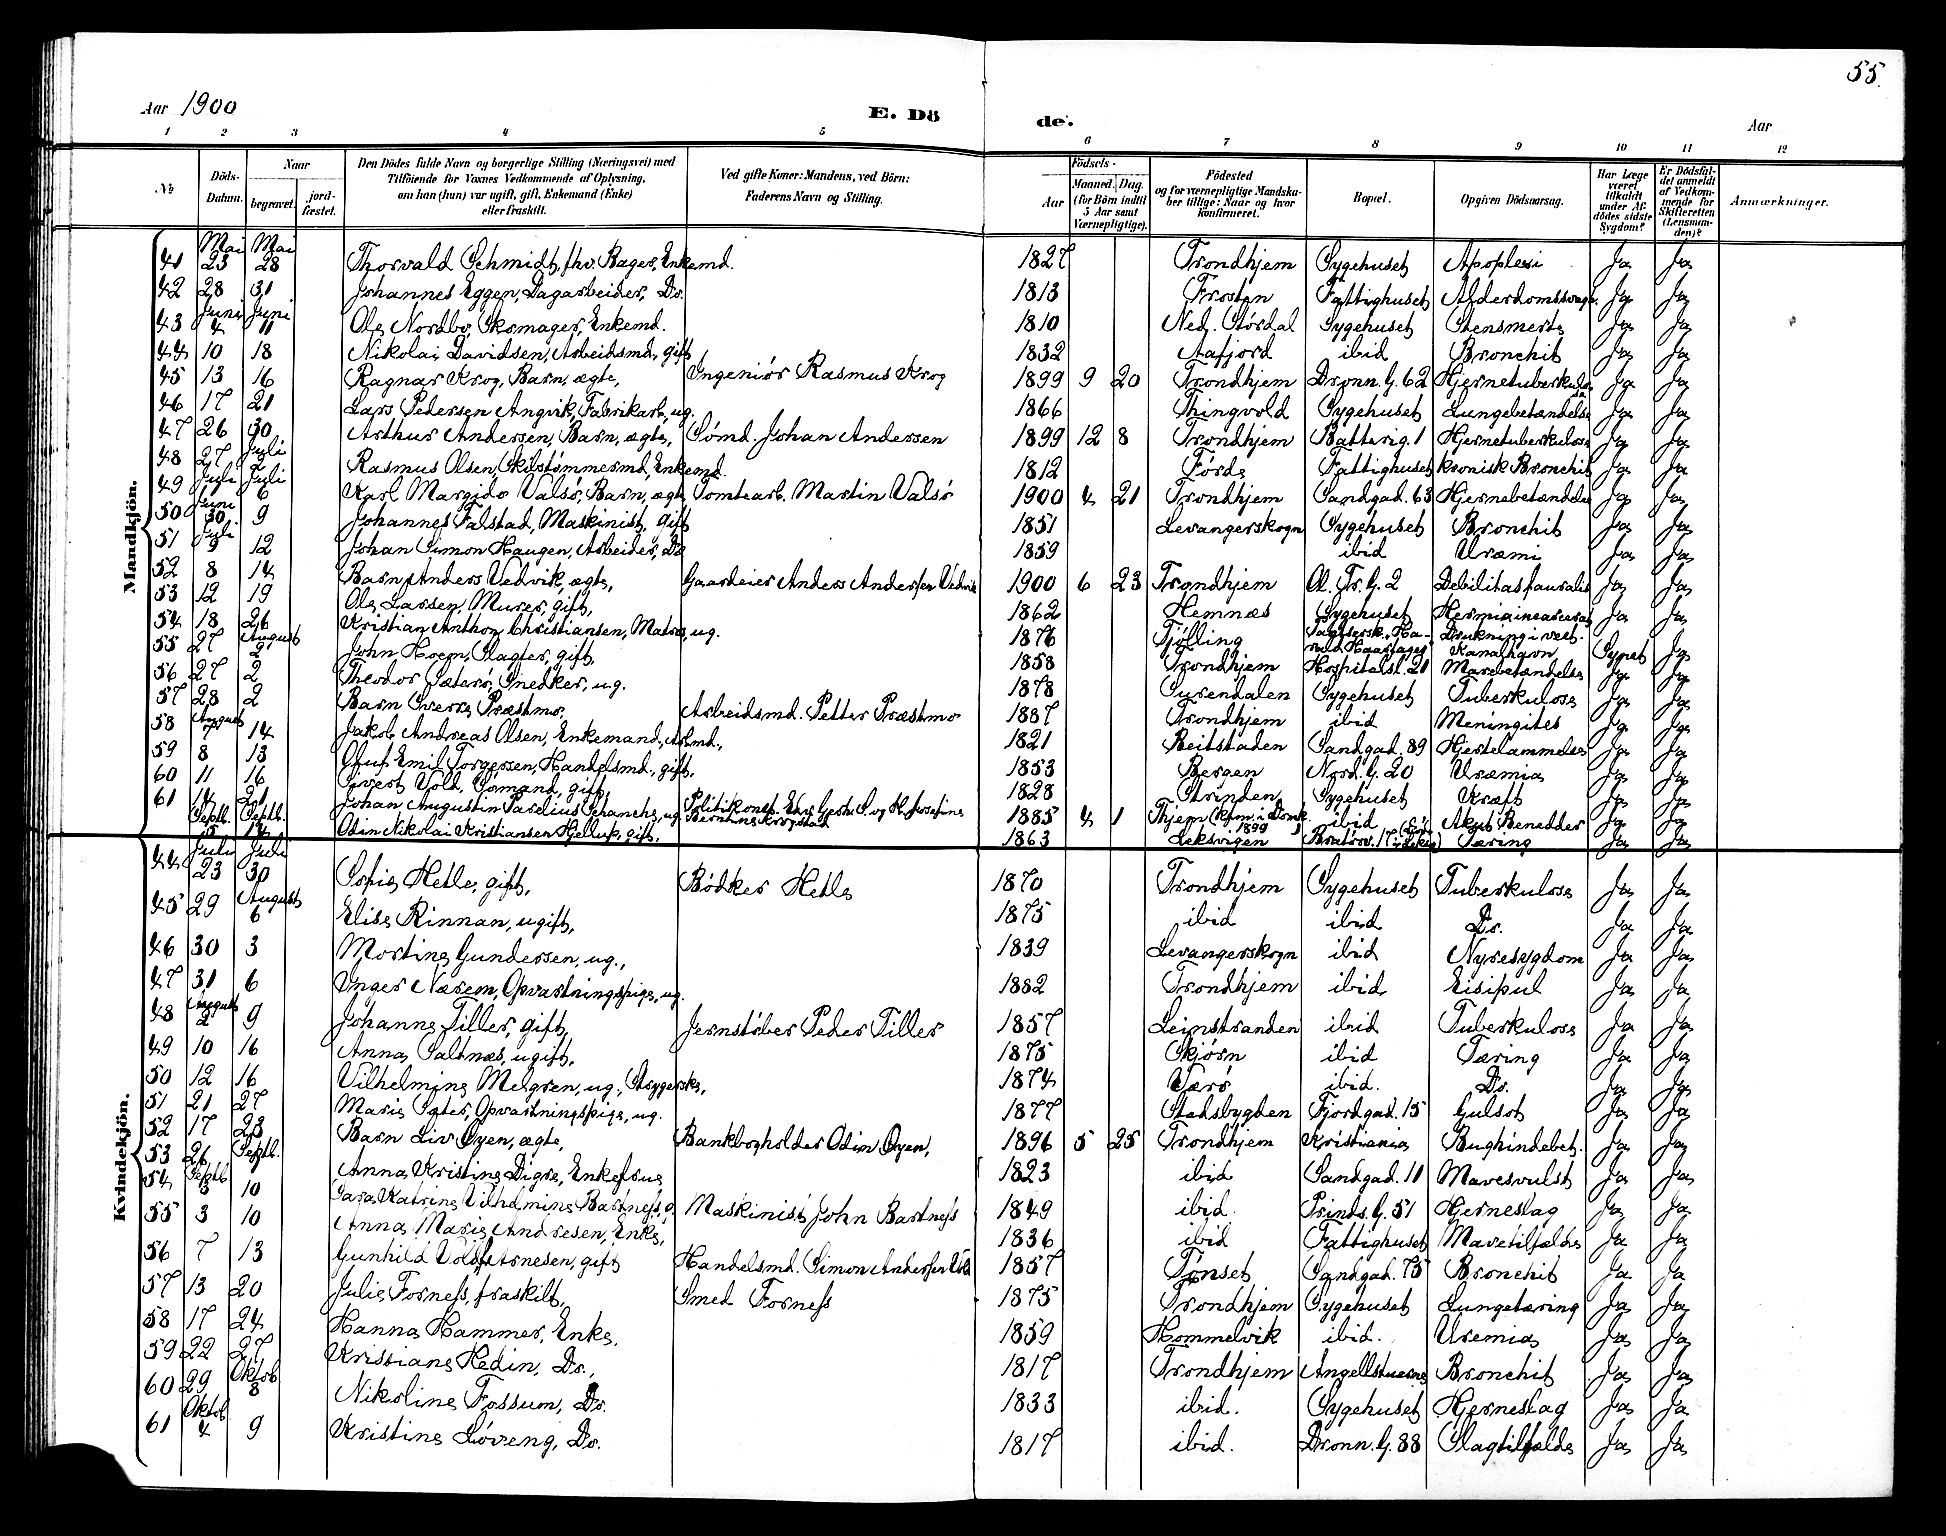 55.
Aar 1900
E. Dö
de.
Aar
1 2 3 4 5 6 7 8 9 10 11 12
№
Döds-
Datum.
Naar
begravet.
jord-
fæstet.
Den Dödes fulde Navn og borgerlige Stilling (Næringsvei) med
Tilföiende for Voxnes Vedkommende af Oplysning,
om han (hun) var ugift, gift, Enkemand (Enke)
eller fraskilt.
Ved gifte Koner: Mandens, ved Börn:
Faderens Navn og Stilling.
Födsels-
Aar
Maaned. Dag.
(for Börn indtil
5 Aar samt
Værnepligtige).
Födested
og for værnepligtige Mandska-
ber tillige: Naar og hvor
konfirmeret.
Bopæl.
Opgiven Dödsaarsag.
Har Læge
været
tilkaldt
under Af-
dödes sidste
Sygdom?
Er Dödsfal-
det anmeldt
af Vedkom-
mende for
Skifteretten
(Lensman-
den)?
Anmærkninger.
Mandkjön.
Mai Mai
41 23 28 Thorvald Schmidt, fhv. Bager, Enkemd. 1827 Trondhjem Sygehuset Apoplexi Ja Ja
42 28 31 Johannes Eggen, Dagarbeider, Do. 1813 Frosten Fattighuset Ja Ja
Juni Juni
43 4 11 Ole Nordbø, Skomager, Enkemd. 1810 Ned. Størdal Sygehuset Stensmerte Ja Ja
44 10 18 Nikolai Davidsen, Arbeidsmd., gift 1832 Aafjord ibid Bronchit Ja Ja
45 13 16 Ragnar Krog, Barn, ægte, Ingeniør Rasmus Krog 1899 9 20 Trondhjem Dronn. G. 62 Hjernetuberkulose Ja Ja
46 17 21 Lars Pedersen Angvik, Fabrikarb., ug. 1866 Thingvold Sygehuset Lungebetændelse Ja Ja
47 26 30 Arthur Andersen, Barn, ægte, Sømd. Johan Andersen 1899 12 8 Trondhjem Batterig. 1 Hjernetuberkulose Ja Ja
Juli
48 27 2 Rasmus Olsen, Skibstømmermd, Enkemd. 1812 Førde Fattighuset kronisk Bronchit Ja Ja
Juli Juli
49 6 Karl Margido Valsø, Barn, ægte Tomtearb. Martin Valsø 1900 4 21 Trondhjem Sandgad. 63 Hjernebetændelse Ja Ja
Juni
50 30 9 Johannes Falstad, Maskinist, gift 1851 Levangerskogn Sygehuset Bronchit Ja Ja
Juli
51 9 12 Johan Simon Haugen, Arbeider, Do 1859 ibid Uræmi Ja Ja
52 8 14 Barn Anders Vedvik, ægte, Gaardeier Anders Andersen Vedvik 1900 6 23 Trondhjem Ol. Tr. G. 2 Debilitas Ja Ja
53 12 19 Ole Larsen, Murer, gift, 1862 Hemnæs Sygehuset Ja Ja
54 18 26 Kristian Anthon Christiansen, Matros, ug. 1876 Tjølling Drukning i vest- Kanalhavn Synet Ja
August
55 27 2 John Hoem, Slagter, gift, 1858 Trondhjem Hospitalsl. 21 Mavebetændelse Ja Ja
56 27 2 Theodor Sæterø, Snedker, ug. 1878 Surendalen Sygehuset Tuberkulose Ja Ja
57 28 2 Barn Sverre Præstmo, Arbeidsmd. Petter Præstmo 1887 Trondhjem ibid Meningites Ja Ja
August
58 7 14 Jakob Andreas Olsen, Enkemand, Arbmd., 1821 Beitstaden Sandgad. 89 Hjertelammelse Ja Ja
59 8 13 Oluf Emil Torgersen, Handelsmd., gift, 1853 Bergen Nord. G. 20 Uræmia Ja Ja
60 11 16 Sivert Vold, Sømand, gift, 1828 Strinden Sygehuset Kræft Ja Ja
61 14 21 Johan Augustin Paselius Schanche, ug. 1885 4 1 Thjem (kfm. i Domk. 1899) ibid Ja Ja
Septb. Septb.
5 14 Odin Nikolai Kristiansen Hjellup, gift, 1863 Leksvigen Tæring Ja Ja
Kvindekjön.
Juli Juli
44 23 30 Sofie Hetle, gift, Bødker Hetle 1870 Trondhjem Sygehuset Tuberkulose Ja Ja
August
45 29 6 Elise Rinnan, ugift, 1875 ibid ibid Do. Ja Ja
46 30 3 Martine Gundersen, ug., 1839 Levangerskogn ibid Nyresygdom Ja Ja
47 31 6 Inger Nærem, Opvartningspige, ug. 1882 Trondhjem ibid Eisipul Ja Ja
August
48 2 9 Johanne Tiller, gift, Jernstøber Peder Tiller 1857 Leinstranden ibid Tuberkulose Ja Ja
49 10 16 Anna Saltnæs, ugift, 1875 Skjørn ibid Tæring Ja Ja
50 12 16 Vilhelmine Melgren, ug., Strygerske, 1874 Værø ibid. Do. Ja Ja
51 21 27 Marie Sæter, Opvartningspige, ug. 1877 Stadsbygden Fjordgad. 15 Gulsot Ja Ja
52 17 23 Barn Liv Øyen, ægte, Bankbogholder Odin Øyen, 1896 5 25 Trondhjem Kristiania Bughindebet. Ja Ja
Septb.
53 26 1 Anna Kristine Digre, Enkefrue 1823 ibid Sandgad. 11 Mavesvulst Ja Ja
Septb
54 3 10 Sara Katrine Vilhelmine Bartness, g. Maskinist John Bartness 1849 ibid. Prinds. G. 51 Hjerneslag Ja Ja
55 3 10 Anna Marie Andresen, Enke, 1836 ibid Fattighuset Mavetilfælde Ja Ja
56 7 13 Gunhild Voldset Arnesen, gift Handelsmd. Simon Andersen Vold 1857 Tønset Sandgad. 75 Bronchit Ja Ja
57 13 20 Julie Forness, fraskilt, Smed Forness 1875 Trondhjem Sygehuset Lungetæring Ja Ja
58 17 24 Hanna Hammer, Enke, 1859 Hommelvik ibid. Uremia Ja Ja
59 22 27 Kristiane Hedin, Do., 1817 Trondhjem Angellstuerne Bronchit Ja Ja
Oktob
60 29 8 Nikoline Fossum, Do. 1833 ibid. Sygehuset Hjerneslag Ja Ja
Oktob
61 4 9 Kristine Løveng, Do. 1817 ibid. Dronn. G. 88 Slagtilfælde Ja Ja